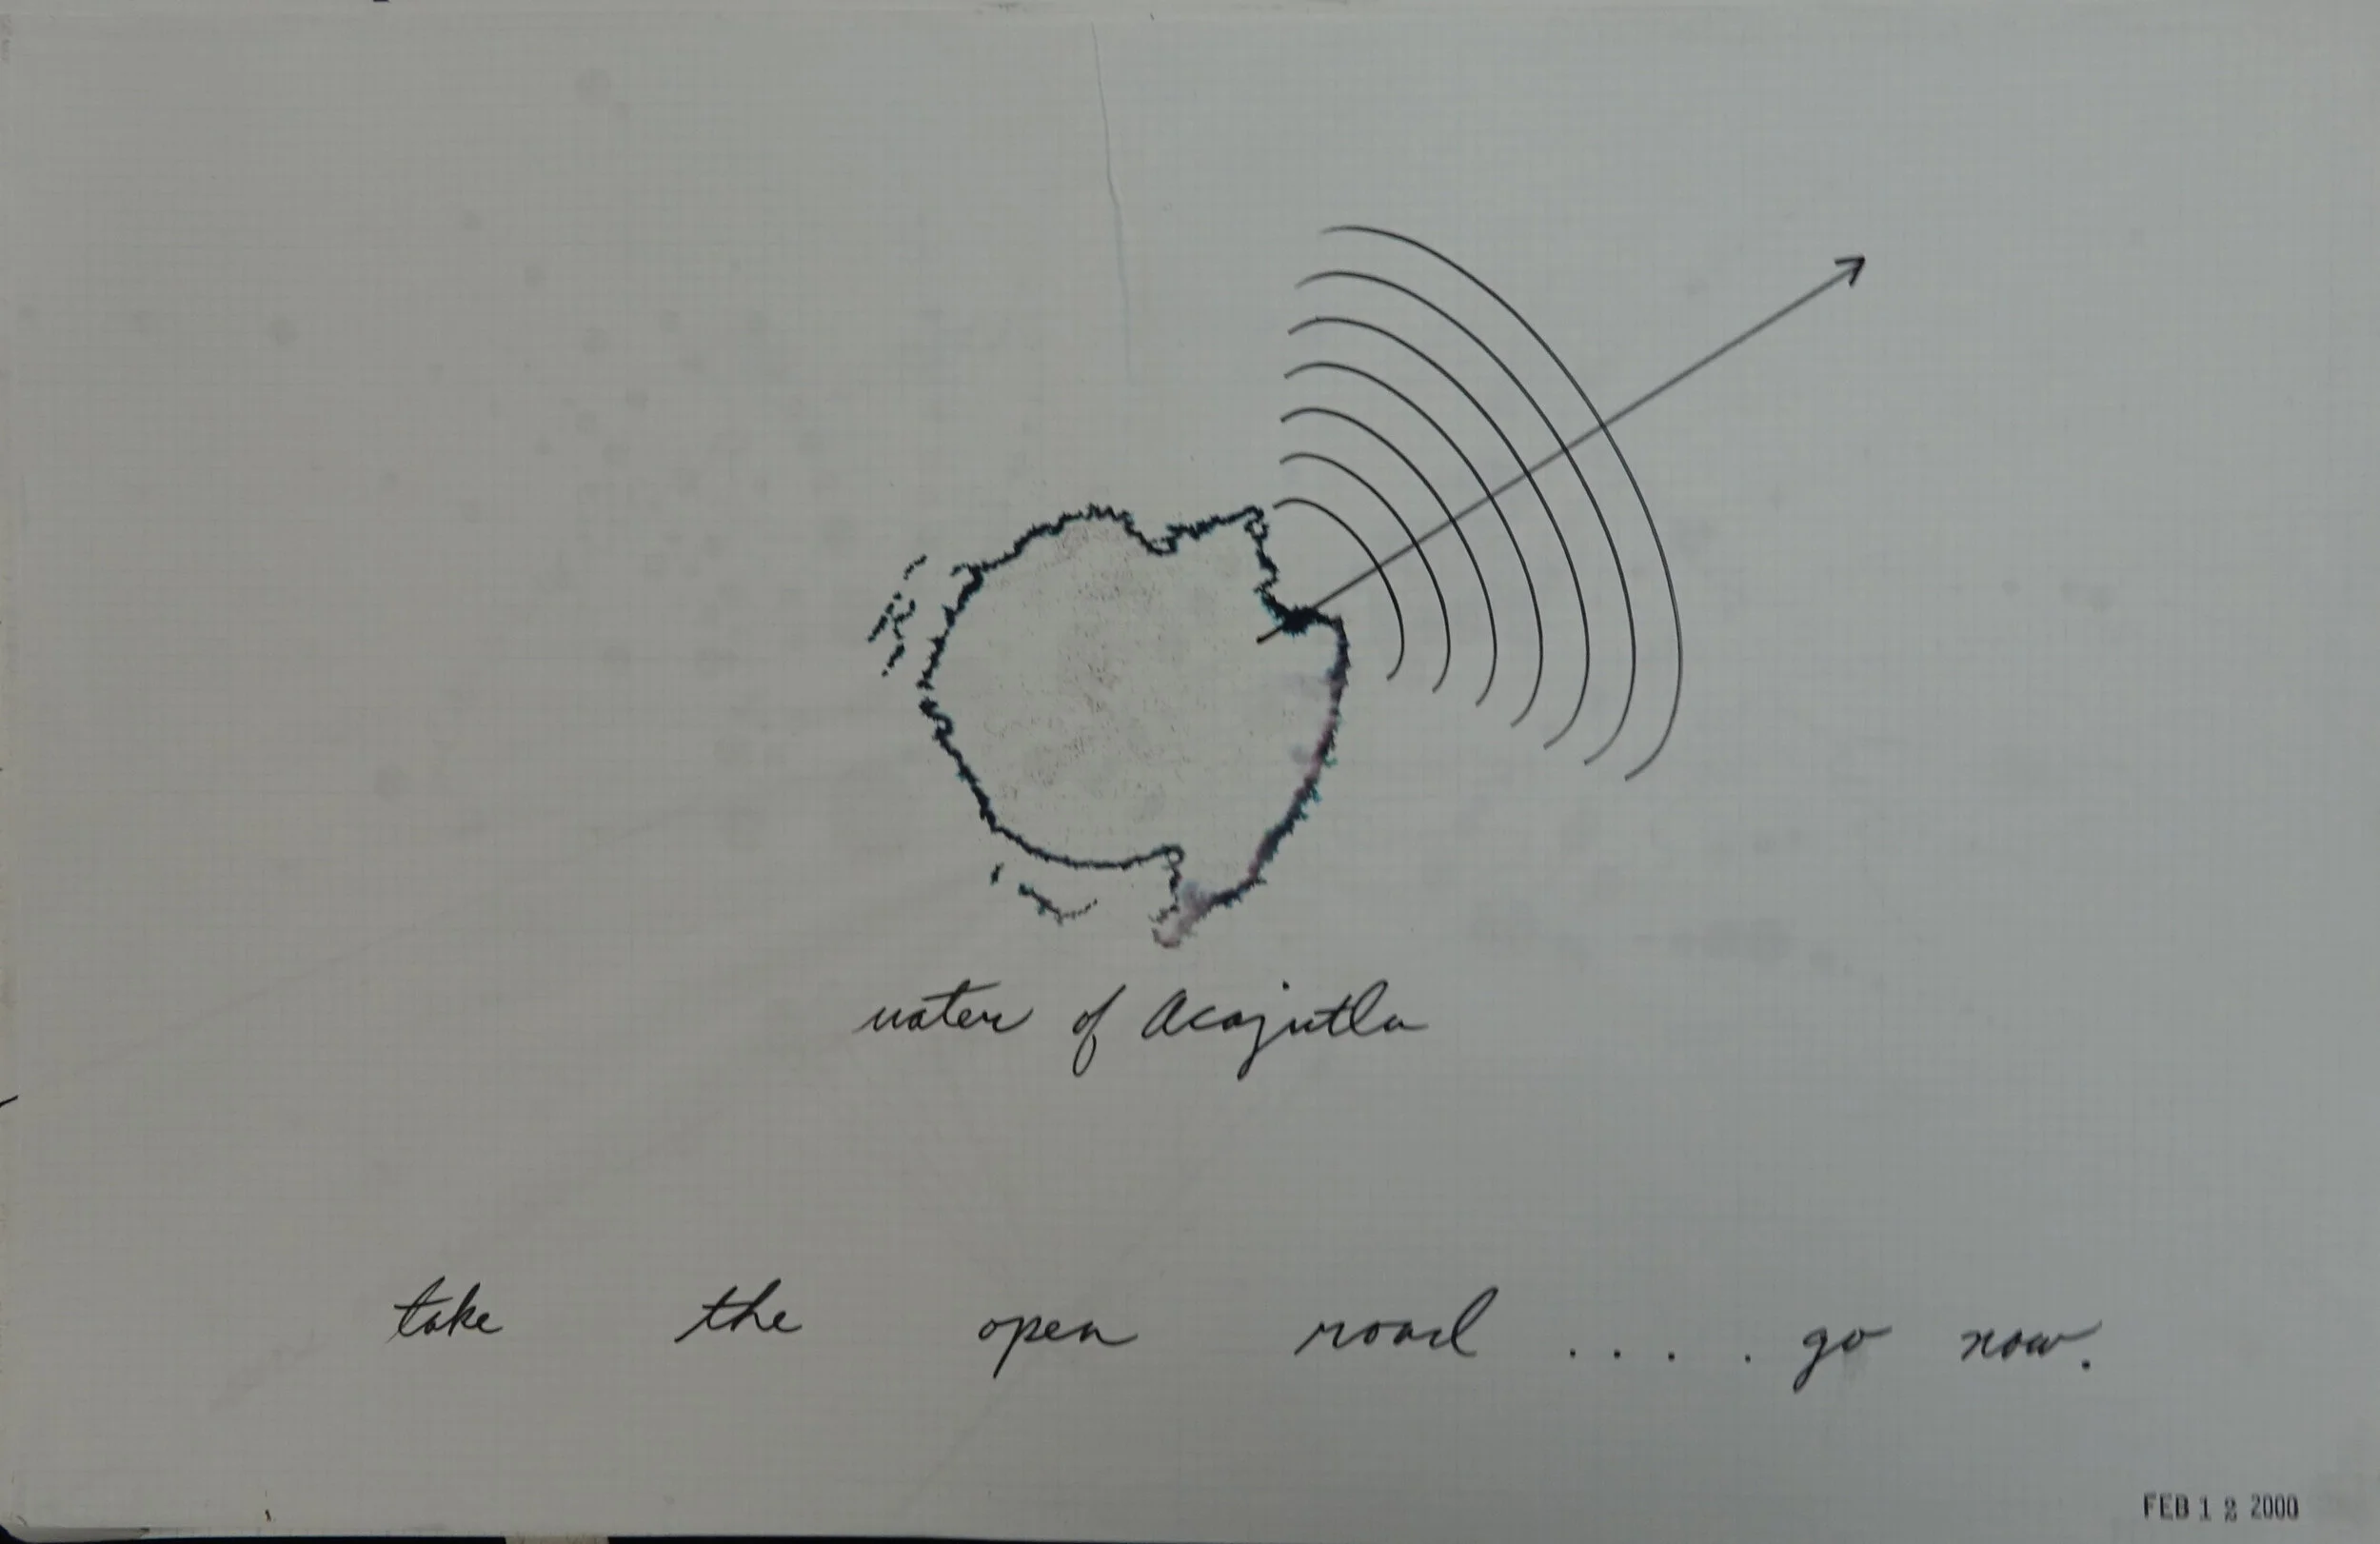 water of Acajutla
take the open road .... go now.
FEB 12 2000